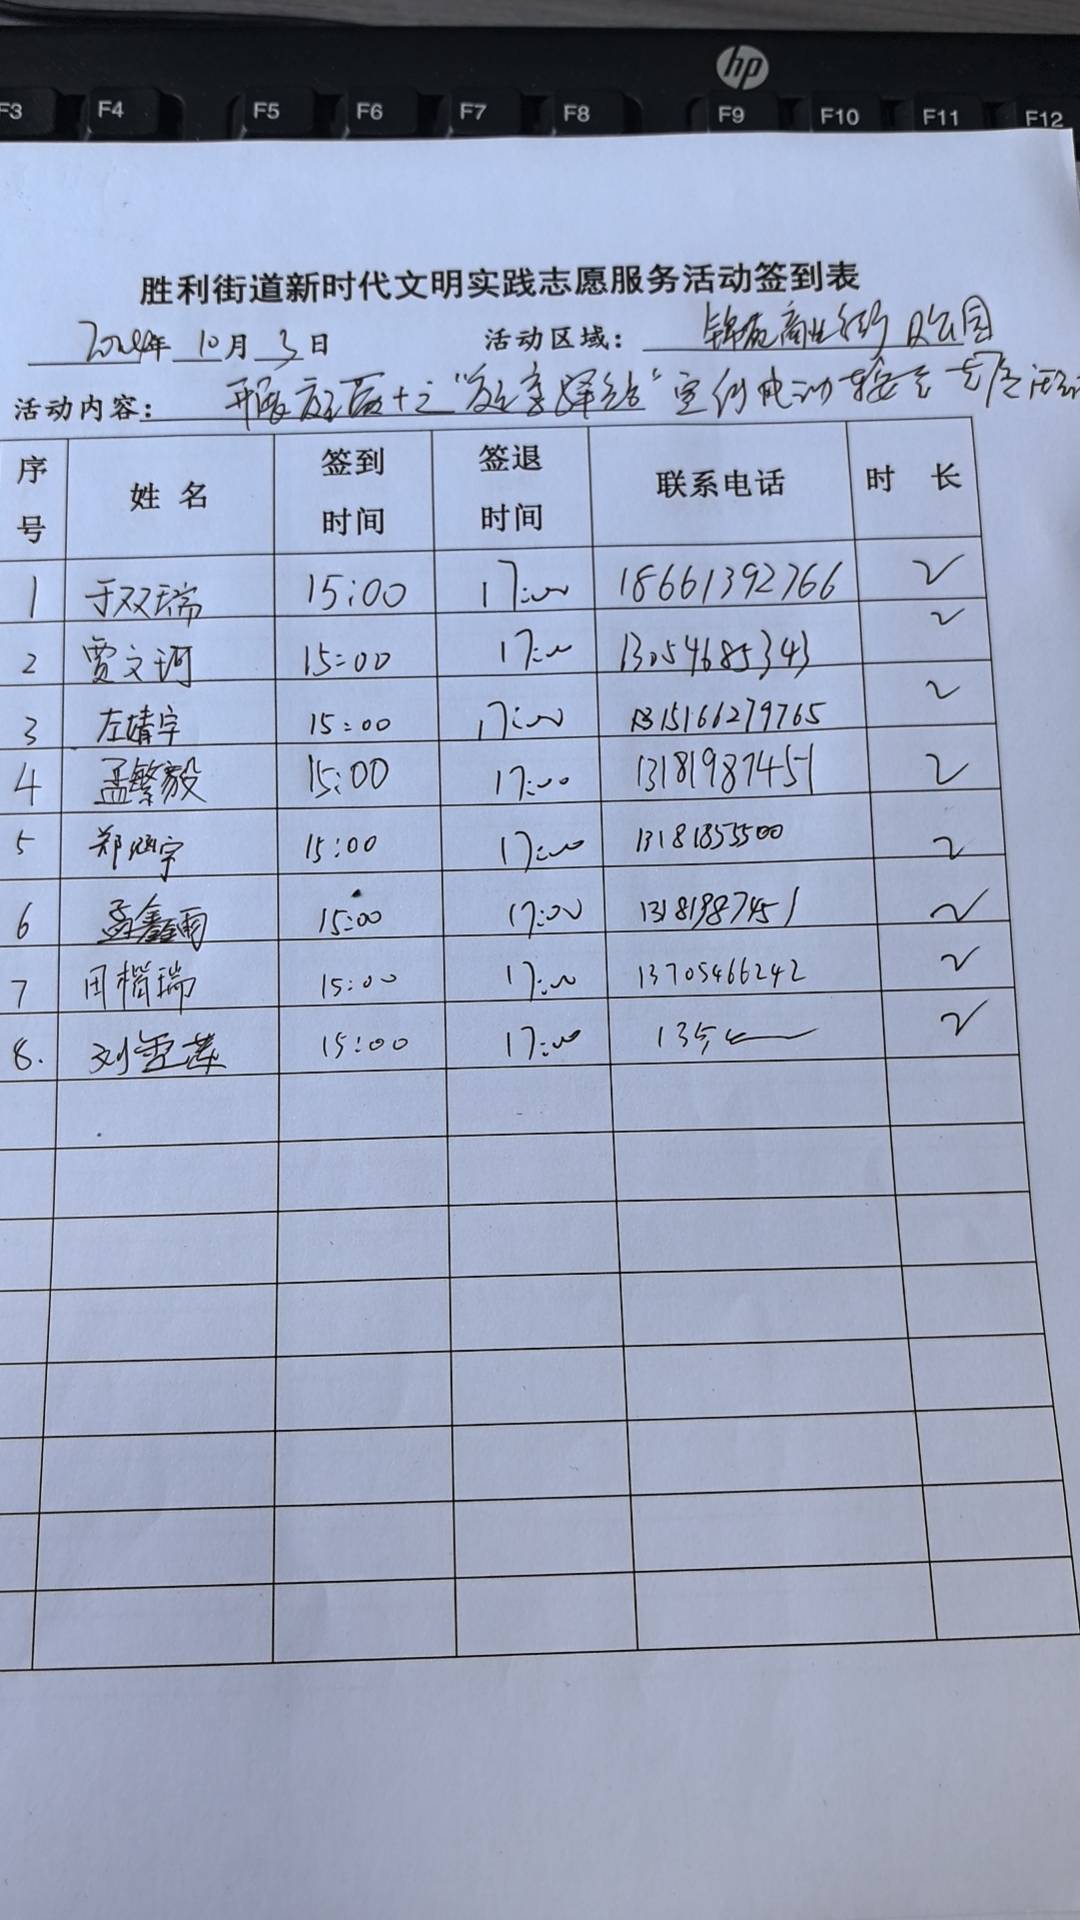 hp
F3 F4 F5 F6 F7 F8 F9 F10 F11 F12
胜利街道新时代文明实践志愿服务活动签到表
2024年 10月 3日 活动区域： 商业街 公园
活动内容： 开展 宣传电动车安全 活动
序号 姓名 签到时间 签退时间 联系电话 时长
1 于双瑞 15:00 17:00 18661392766 2
2 贾文珂 15:00 17:00 13054685343 2
3 左婧宇 15:00 17:00 15166279765 2
4 孟繁毅 15:00 17:00 13181987451 2
5 郑涵宇 15:00 17:00 13181853500 2
6 孟鑫雨 15:00 17:00 13181987451 2
7 田楷瑞 15:00 17:00 13705466242 2
8. 刘 15:00 17:00 2